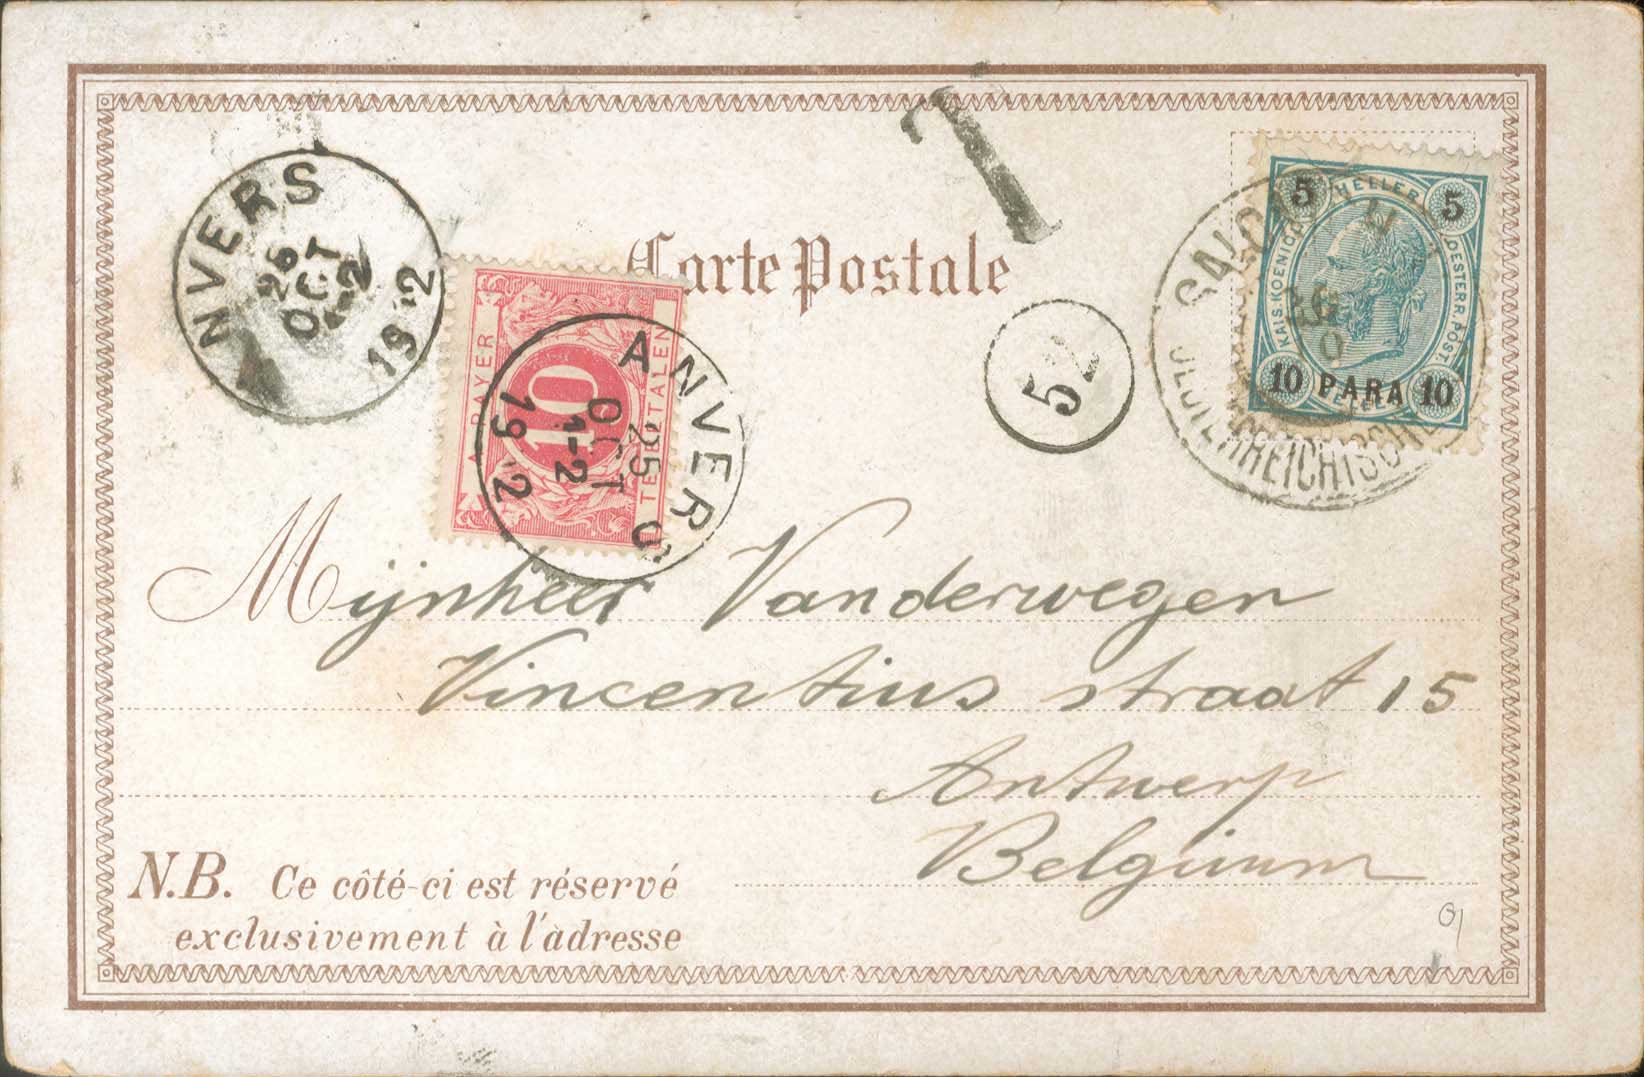 T
ANVERS
26
OCT
19 2
Carte Postale
A PAYER
10
TE BETALEN
ANVERS
25
OCT
1-2
19 2
52
5 HELLER 5
KAIS. KOENIGL. OESTERR. POST.
10 PARA 10
OESTERREICHISCHE
Mijnheer Vanderwegen
Vincentius straat 15
Antwerp
Belgium
N.B. Ce côté-ci est réservé
exclusivement à l'adresse